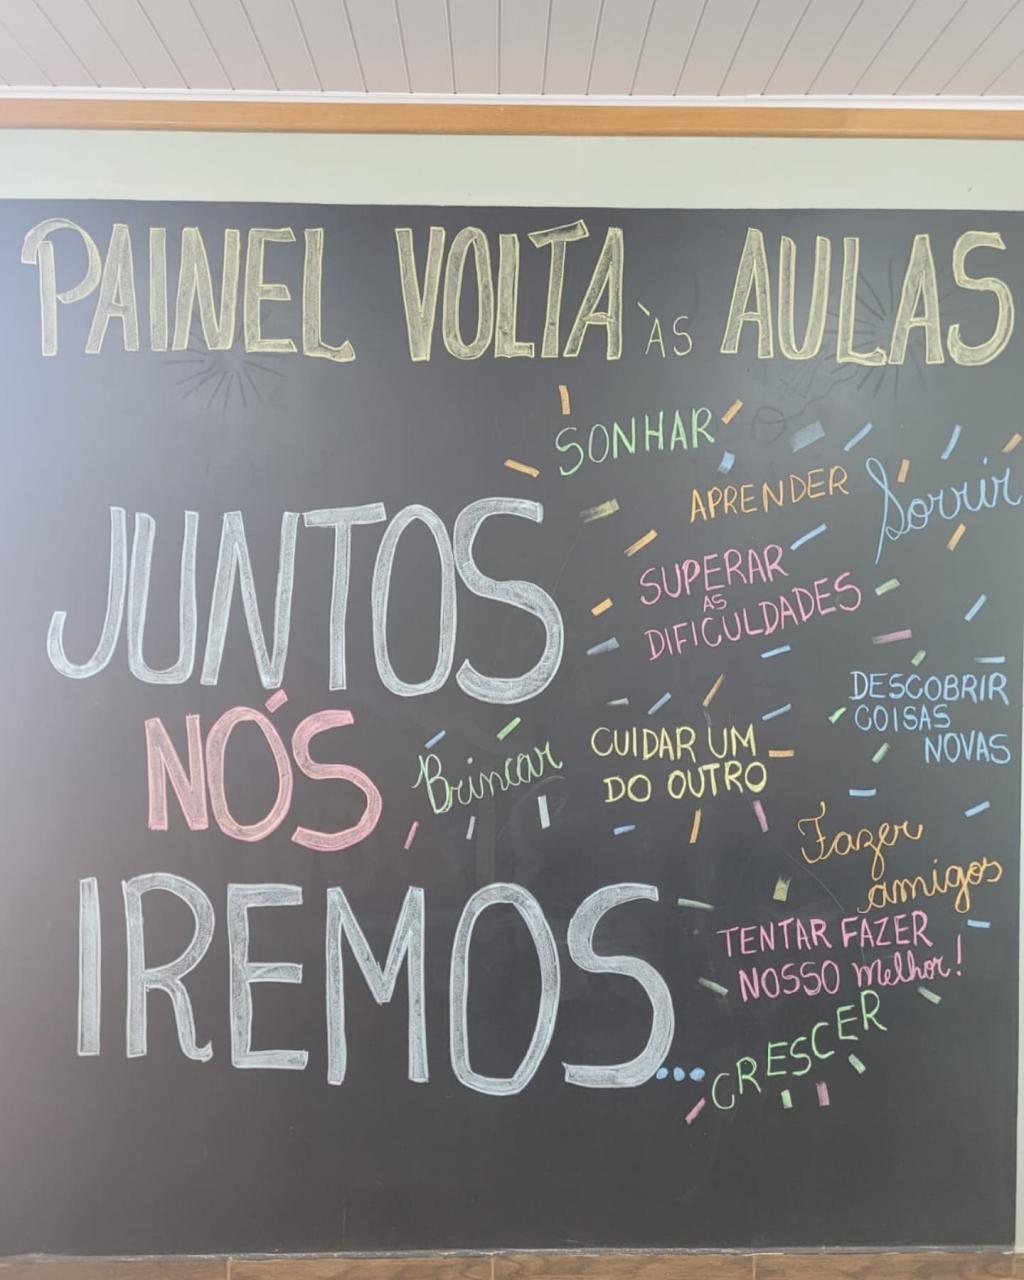 PAINEL VOLTA ÀS AULAS
SONHAR
APRENDER
Sorrir
JUNTOS
SUPERAR
AS
DIFICULDADES
DESCOBRIR
COISAS
NOVAS
NÓS
Brincar
CUIDAR UM
DO OUTRO
Fazer
amigos
IREMOS...
TENTAR FAZER
NOSSO melhor!
CRESCER